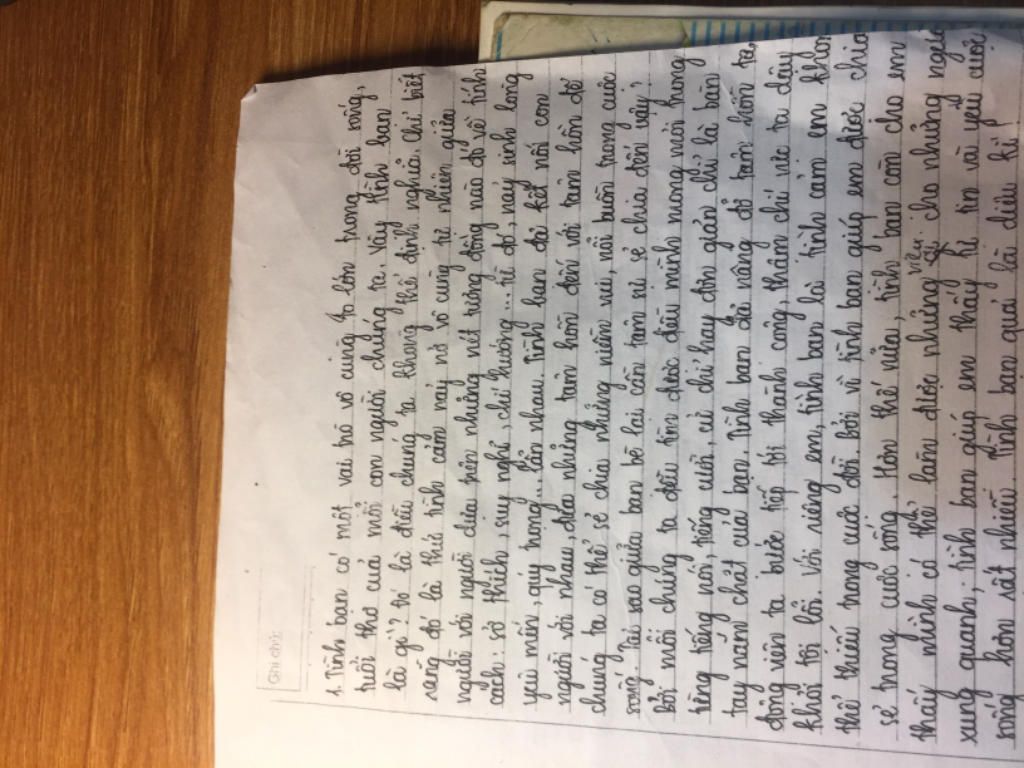 Ghi chú:
1. Tình bạn có một vai trò vô cùng to lớn trong đời sống,
tuổi thơ của mỗi con người chúng ta. Vậy tình bạn
là gì? Đó là điều chúng ta không thể định nghĩa chỉ biết
rằng đó là thứ tình cảm nảy nở vô cùng tự nhiên giữa
người với người dựa trên những nét tương đồng nào đó về tính
cách: sở thích, suy nghĩ, chí hướng... từ đó, nảy sinh lòng
yêu mến, quý trọng... lẫn nhau. Tình bạn đã kết nối con
người với nhau, đưa những tâm hồn đến với tâm hồn để
chúng ta có thể sẻ chia những niềm vui, nỗi buồn trong cuộc
sống. Tại sao giữa bạn bè lại cần tâm sự sẻ chia đến vậy?
Bởi mỗi chúng ta đều tìm được điều mình mong mỏi trong
từng tiếng nói, tiếng cười, cử chỉ hay đơn giản chỉ là bàn
tay nắm chặt của bạn. Tình bạn đã nâng đỡ tâm hồn ta,
động viên ta bước tiếp tới thành công, thậm chí níu ta dậy
khỏi tội lỗi. Với riêng em, tình bạn là tình cảm em không
thể thiếu trong cuộc đời. Bởi vì tình bạn giúp em được chia
sẻ trong cuộc sống. Hơn thế nữa, tình bạn còn cho em
thấy mình có thể làm được những việc gì cho những người
xung quanh; tình bạn giúp em thấy tự tin và yêu cuộc
sống hơn rất nhiều. Tình bạn quả là điều kì